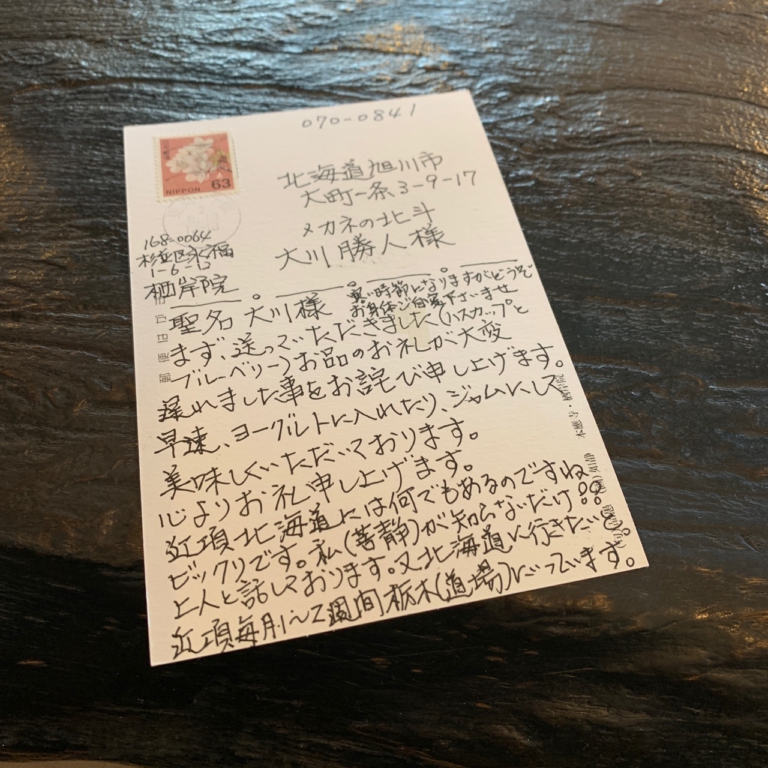 070-0841
NIPPON 63
北海道旭川市
大町一条3-9-17
メガネの北斗
大川勝人様
168-0064
杉並区永福
1-6-12
栖岸院
聖名 大川様
暑い時節になりますがどうぞ
お身体ご自愛下さいませ
まず、送っていただきました(ハスカップと
ブルーベリー)お品のお礼が大変
遅れました事をお詫び申し上げます。
早速、ヨーグルトに入れたり、ジャムにして
美味しくいただいております。
心よりお礼申し上げます。
近頃北海道には何でもあるのですね
ビックリです。私(等静)が知らないだけ!?
上人と話しております。又北海道に行きたいと。
近頃毎月1~2週間栃木(道場)に行っています。